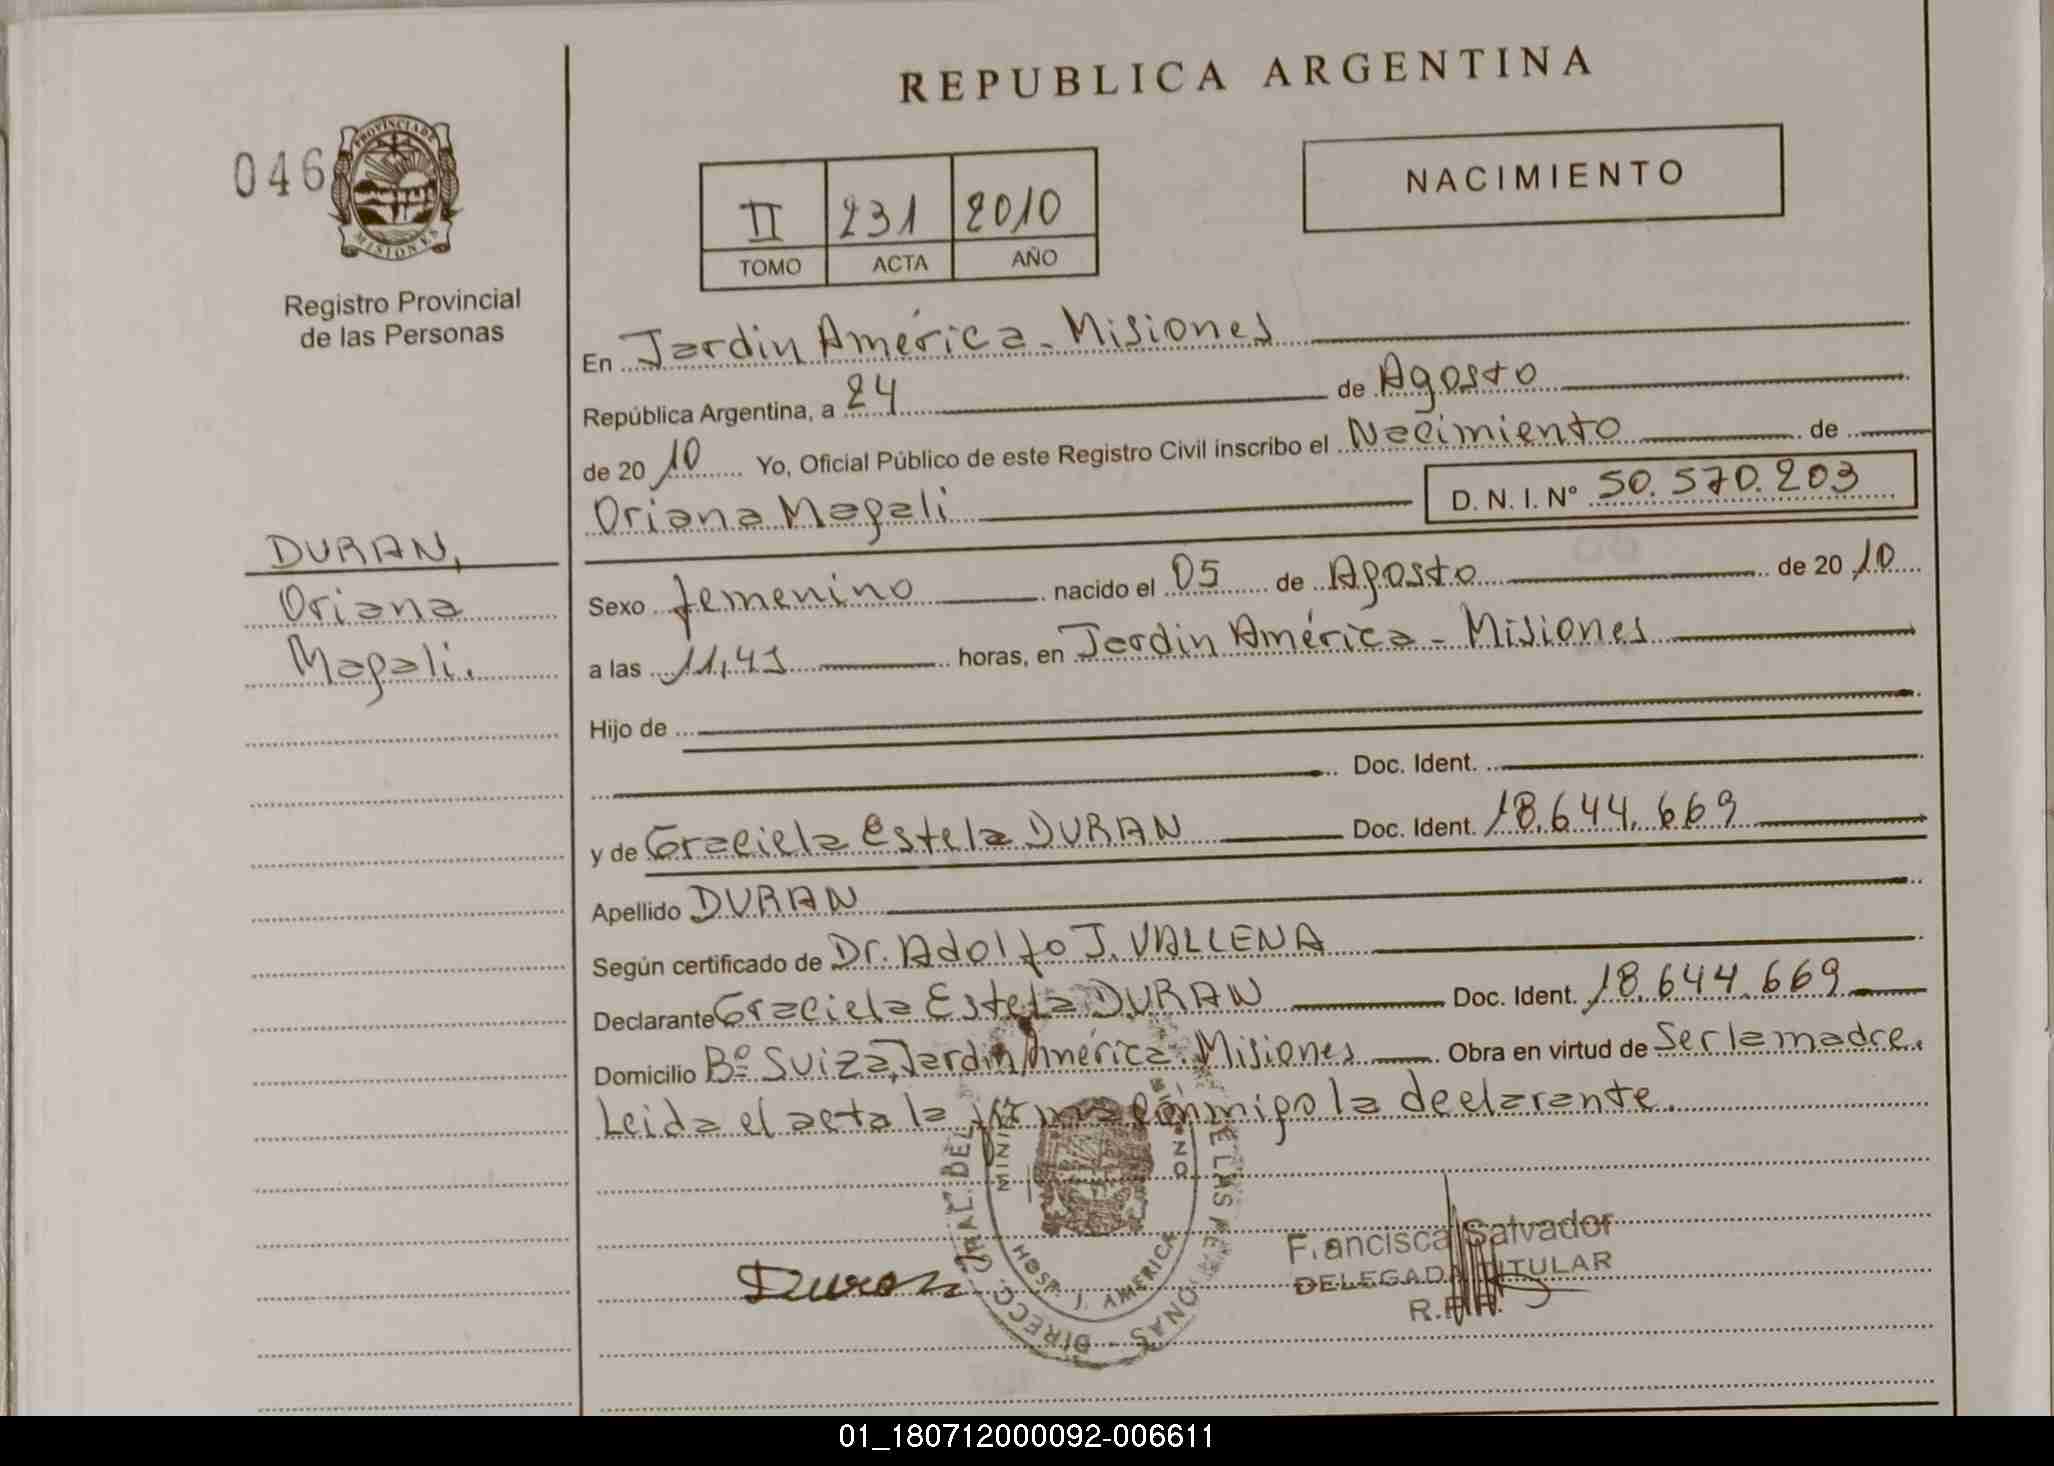 REPUBLICA ARGENTINA
046
PROVINCIA DE
MISIONES
Registro Provincial
de las Personas
II 231 2010
TOMO ACTA AÑO
NACIMIENTO
En Jardin América - Misiones
República Argentina, a 24 de Agosto
de 20 10 Yo, Oficial Público de este Registro Civil inscribo el Nacimiento de
Oriana Magali D. N. I. Nº 50.570.203
DURAN,
Oriana
Magali.
Sexo femenino nacido el 05 de Agosto de 20 10
a las 11,45 horas, en Jardin América - Misiones
Hijo de
Doc. Ident.
y de Graciela Estela DURAN Doc. Ident. 18.644.669
Apellido DURAN
Según certificado de Dr. Adolfo J. VALLENA
Declarante Graciela Estela DURAN Doc. Ident. 18.644.669
Domicilio Bº Suiza, Jardin América. Misiones Obra en virtud de Ser la madre.
Leida el acta la firma conmigo la declarante.
DIRECC. GRAL. DEL DE LAS PERSONAS
HOSP. J. AMERICA
Duran
Francisca Salvador
DELEGADA TITULAR
01_180712000092-006611